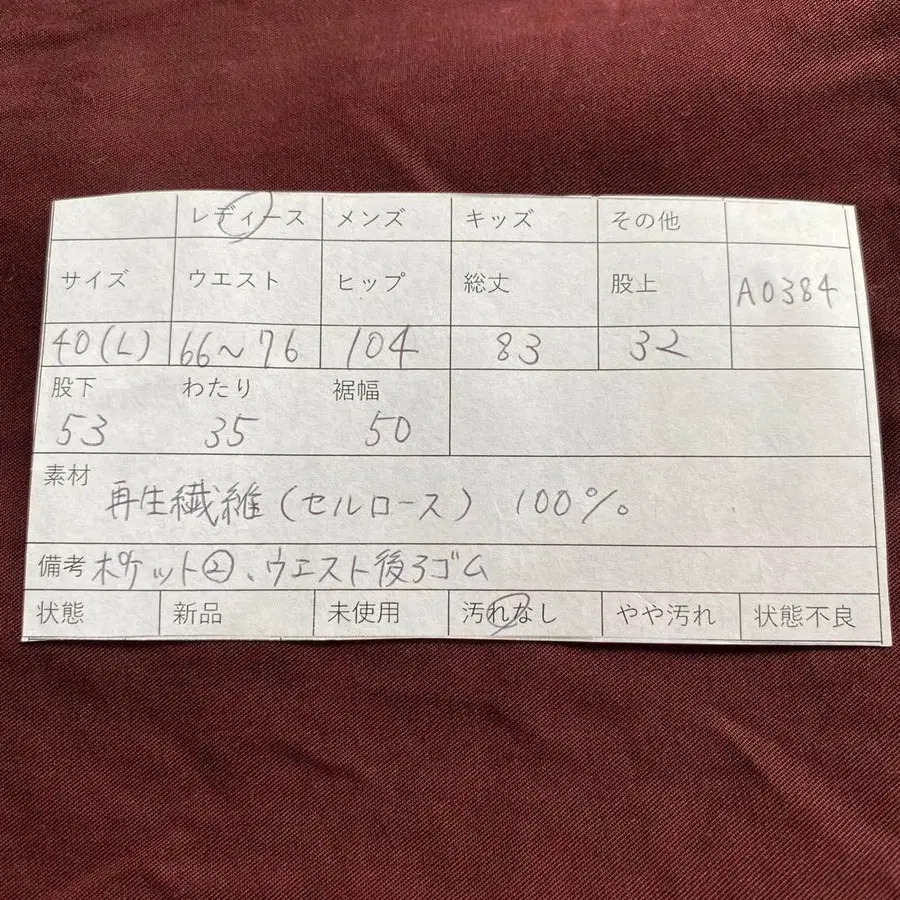 レディース メンズ キッズ その他
サイズ ウエスト ヒップ 総丈 股上 A0384
40(L) 66～76 104 83 32
股下 わたり 裾幅
53 35 50
素材 再生繊維(セルロース) 100%。
備考 ポケット②、ウエスト後ろゴム
状態 新品 未使用 汚れなし やや汚れ 状態不良